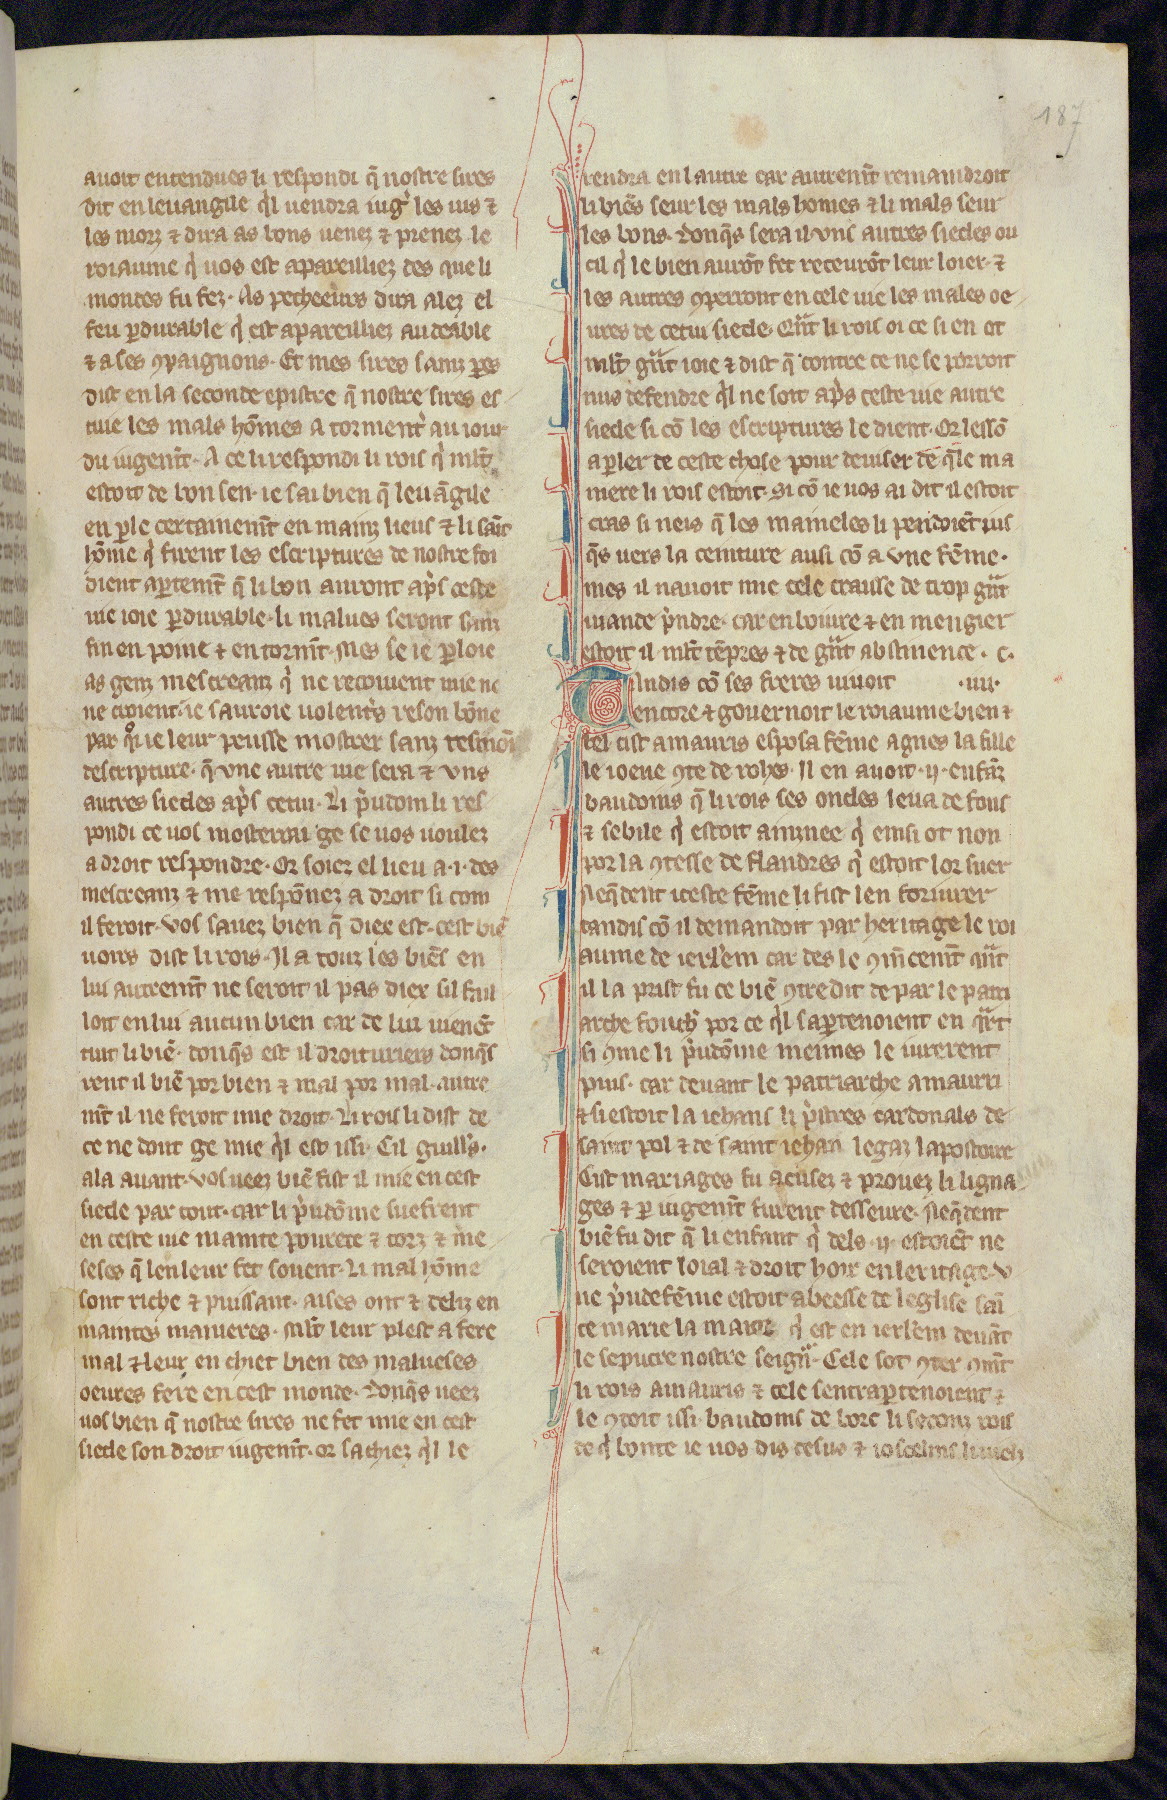 187
auoit entendues li respondi q̄ nostre sires
dit en leuangile q̓l uendra iug̓ les uis ⁊
les morz ⁊ dira as bons uenez ⁊ prenez le
roiaume q̓ uos est apareilliez des que li
mondes fu fez. As pecheeurs dira alez el
feu ꝑdurable q̓ est apareilliez au deable
⁊ a ses ꝯpaignons. Et mes sires sainz peres
dist en la seconde epistre q̄ nostre sires es
tuie les mals hōmes a torment̓ au iour
du iugem̄t. A ce li respondi li rois q̓ ml̄t
estoit de bon sen. ie sai bien q̄ leuāgile
en ꝑle certainem̄t en mainz lieus ⁊ li saīt
hōme q̓ firent les escriptures de nostre foi
dient aꝑtem̄t q̄ li bon auront ap̓s ceste
uie ioie ꝑdurable. li malues seront sanz
fin en poine ⁊ en torm̄t. Mes se ie ꝑloie
as genz mescreanz q̓ ne recoiuent mie ne
ne croient. ie sauroie uolent̓s reson bōne
par quoi ie leur peusse mostrer sanz tesmoī
descripture. q̄ vne autre uie sera ⁊ vns
autres siecles ap̓s cetui. Li p̓udom li res
pondi ce uos mosterrai ge se uos uoulez
a droit respondre. Or soiez el lieu a .i. des
mescreanz ⁊ me respōnez a droit si com
il feroit. Vos sauez bien q̄ diex est. cest biē
uoirs dist li rois. Il a touz les biēs en
lui autrem̄t ne seroit il pas diex sil fail
loit en lui aucun bien car de lui uienēt
tuit li biē. donq̄s est il droituriers donq̄s
rent il biē por bien ⁊ mal por mal. autre
m̄t il ne feroit mie droit. Li rois li dist de
ce ne dout ge mie q̓l est issi. Cil guill̓s.
ala auant. vos ueez biē fist il mie en cest
siecle par tout. car li p̓udōme suefrent
en ceste uie mainte pourete ⁊ torz ⁊ me
seses q̄ len leur fet souent. Li mal hōme
sont riche ⁊ puissant. aises ont ⁊ deliz en
maintes manieres. ml̄t leur plest a fere
mal ⁊ leur en chiet bien des malueses
oeures fere en cest monde. donq̄s ueez
uos bien q̄ nostre sires ne fet mie en cest
siecle son droit iugem̄t. or sachiez q̓l le
rendra en lautre car autrem̄t remaindroit
li biēs seur les mals homes ⁊ li mals seur
les bons. donq̄s sera il vns autres siecles ou
cil q̓ le bien aurōt fet receurōt leur loier. ⁊
les autres ꝯperront en cele uie les males oe
ures de cetui siecle. Qu̅t li rois oi ce si en ot
ml̄t gūt ioie ⁊ dist q̄ contre ce ne se porroit
nus defendre q̓l ne soit ap̓s ceste uie autre
siecle si cō les escriptures le dient. Or lessō
a ꝑler de ceste chose pour deuiser de q̄le ma
niere li rois estoit. Si cō ie uos ai dit il estoit
cras si neis q̄ les mameles li pendoiēt ius
q̄s uers la ceinture ausi cō a vne fēme.
mes il nauoit mie cele craisse de trop gūt
uiande p̓ndre. car en boiure ⁊ en mengier
estoit il ml̄t tēpres ⁊ de gūt abstinence. c.
Tandis cō ses freres uiuoit .iiii.
encore ⁊ gouernoit le roiaume bien ⁊
bel cist amauris esposa fēme agnes la fille
le ioene ꝯte de rohes. Il en auoit .ii. enfāz
baudouins q̄ li rois ses oncles leua de fons
⁊ sebile q̓ estoit ainznee q̓ einsi ot non
por la ꝯtesse de flandres q̓ estoit lor suer
Neq̄dent iceste fēme li fist len foriurer
tandis cō il demandoit par heritage le roi
aume de ierl̓em car des le ꝯm̄cem̄t qūt
il la prist fu ce biē ꝯtredit de par le patri
arche fouch̓ por ce q̓l saꝑtenoient en q̄rt
si ꝯme li p̓udōme meimes le iurerent
puis. car deuant le patriarche amaurri
⁊ si estoit la iehans li p̓stres cardonals de
saint pol ⁊ de saint iehan legaz lapostoire
Cist mariages fu acusez ⁊ prouez li ligna
ges ⁊ ꝑ iugem̄t furent desseure. Neq̄dent
biē fu dit q̄ li enfant q̓ dels .ii. estoiēt ne
seroient loial ⁊ droit hoir en leritage. v
ne p̓udefēme estoit abeesse de leglise saī
te marie la maior q̓ est en ierl̓em deuāt
le sepucre nostre seignr̄. Cele sot ꝯter ꝯm̄t
li rois amauris ⁊ cele sentraꝑtenoient ⁊
le ꝯtoit issi. baudoins de borc li seconz rois
de q̓ bonte ie uos dis desus ⁊ ioscelins li uielz